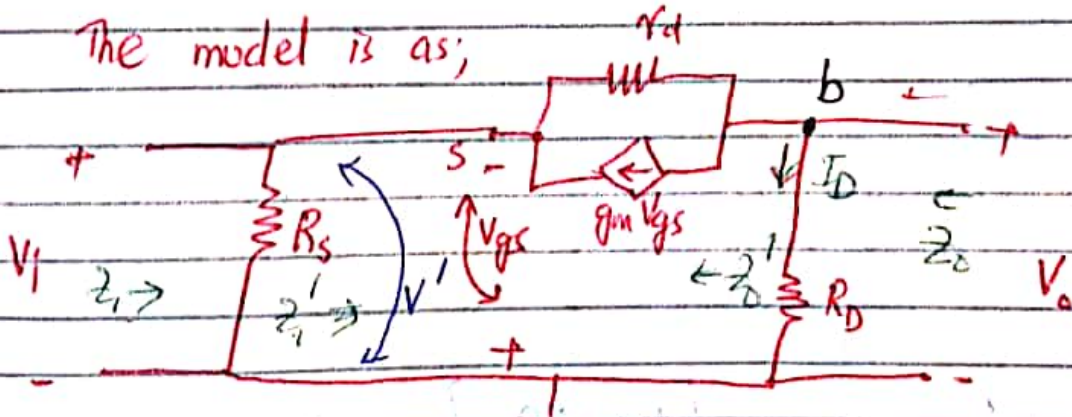 The model is as;
rd
b
+ +
S -
ID
gm Vgs
Vgs
Rs
Vi Zi → Zi' → V' ← Zo' RD Zo Vo
+
- -